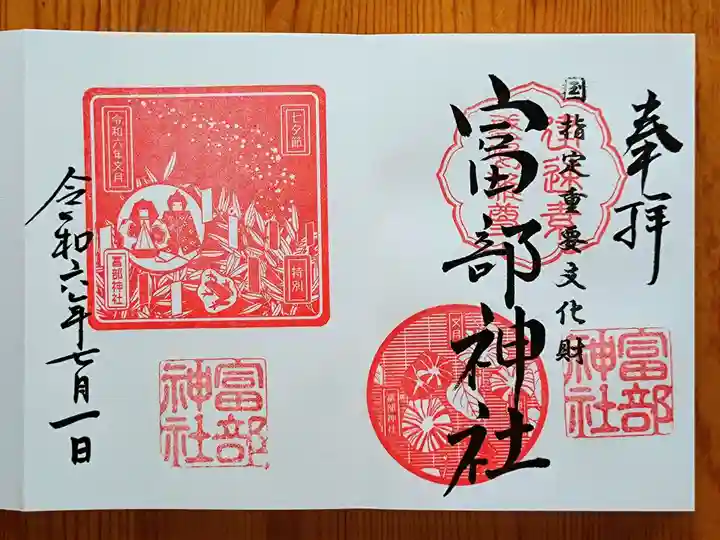 奉拝
国指定重要文化財
富部神社
文月
富部神社
富部神社
七夕節
令和六年文月
特別
富部神社
富部神社
令和六年七月一日